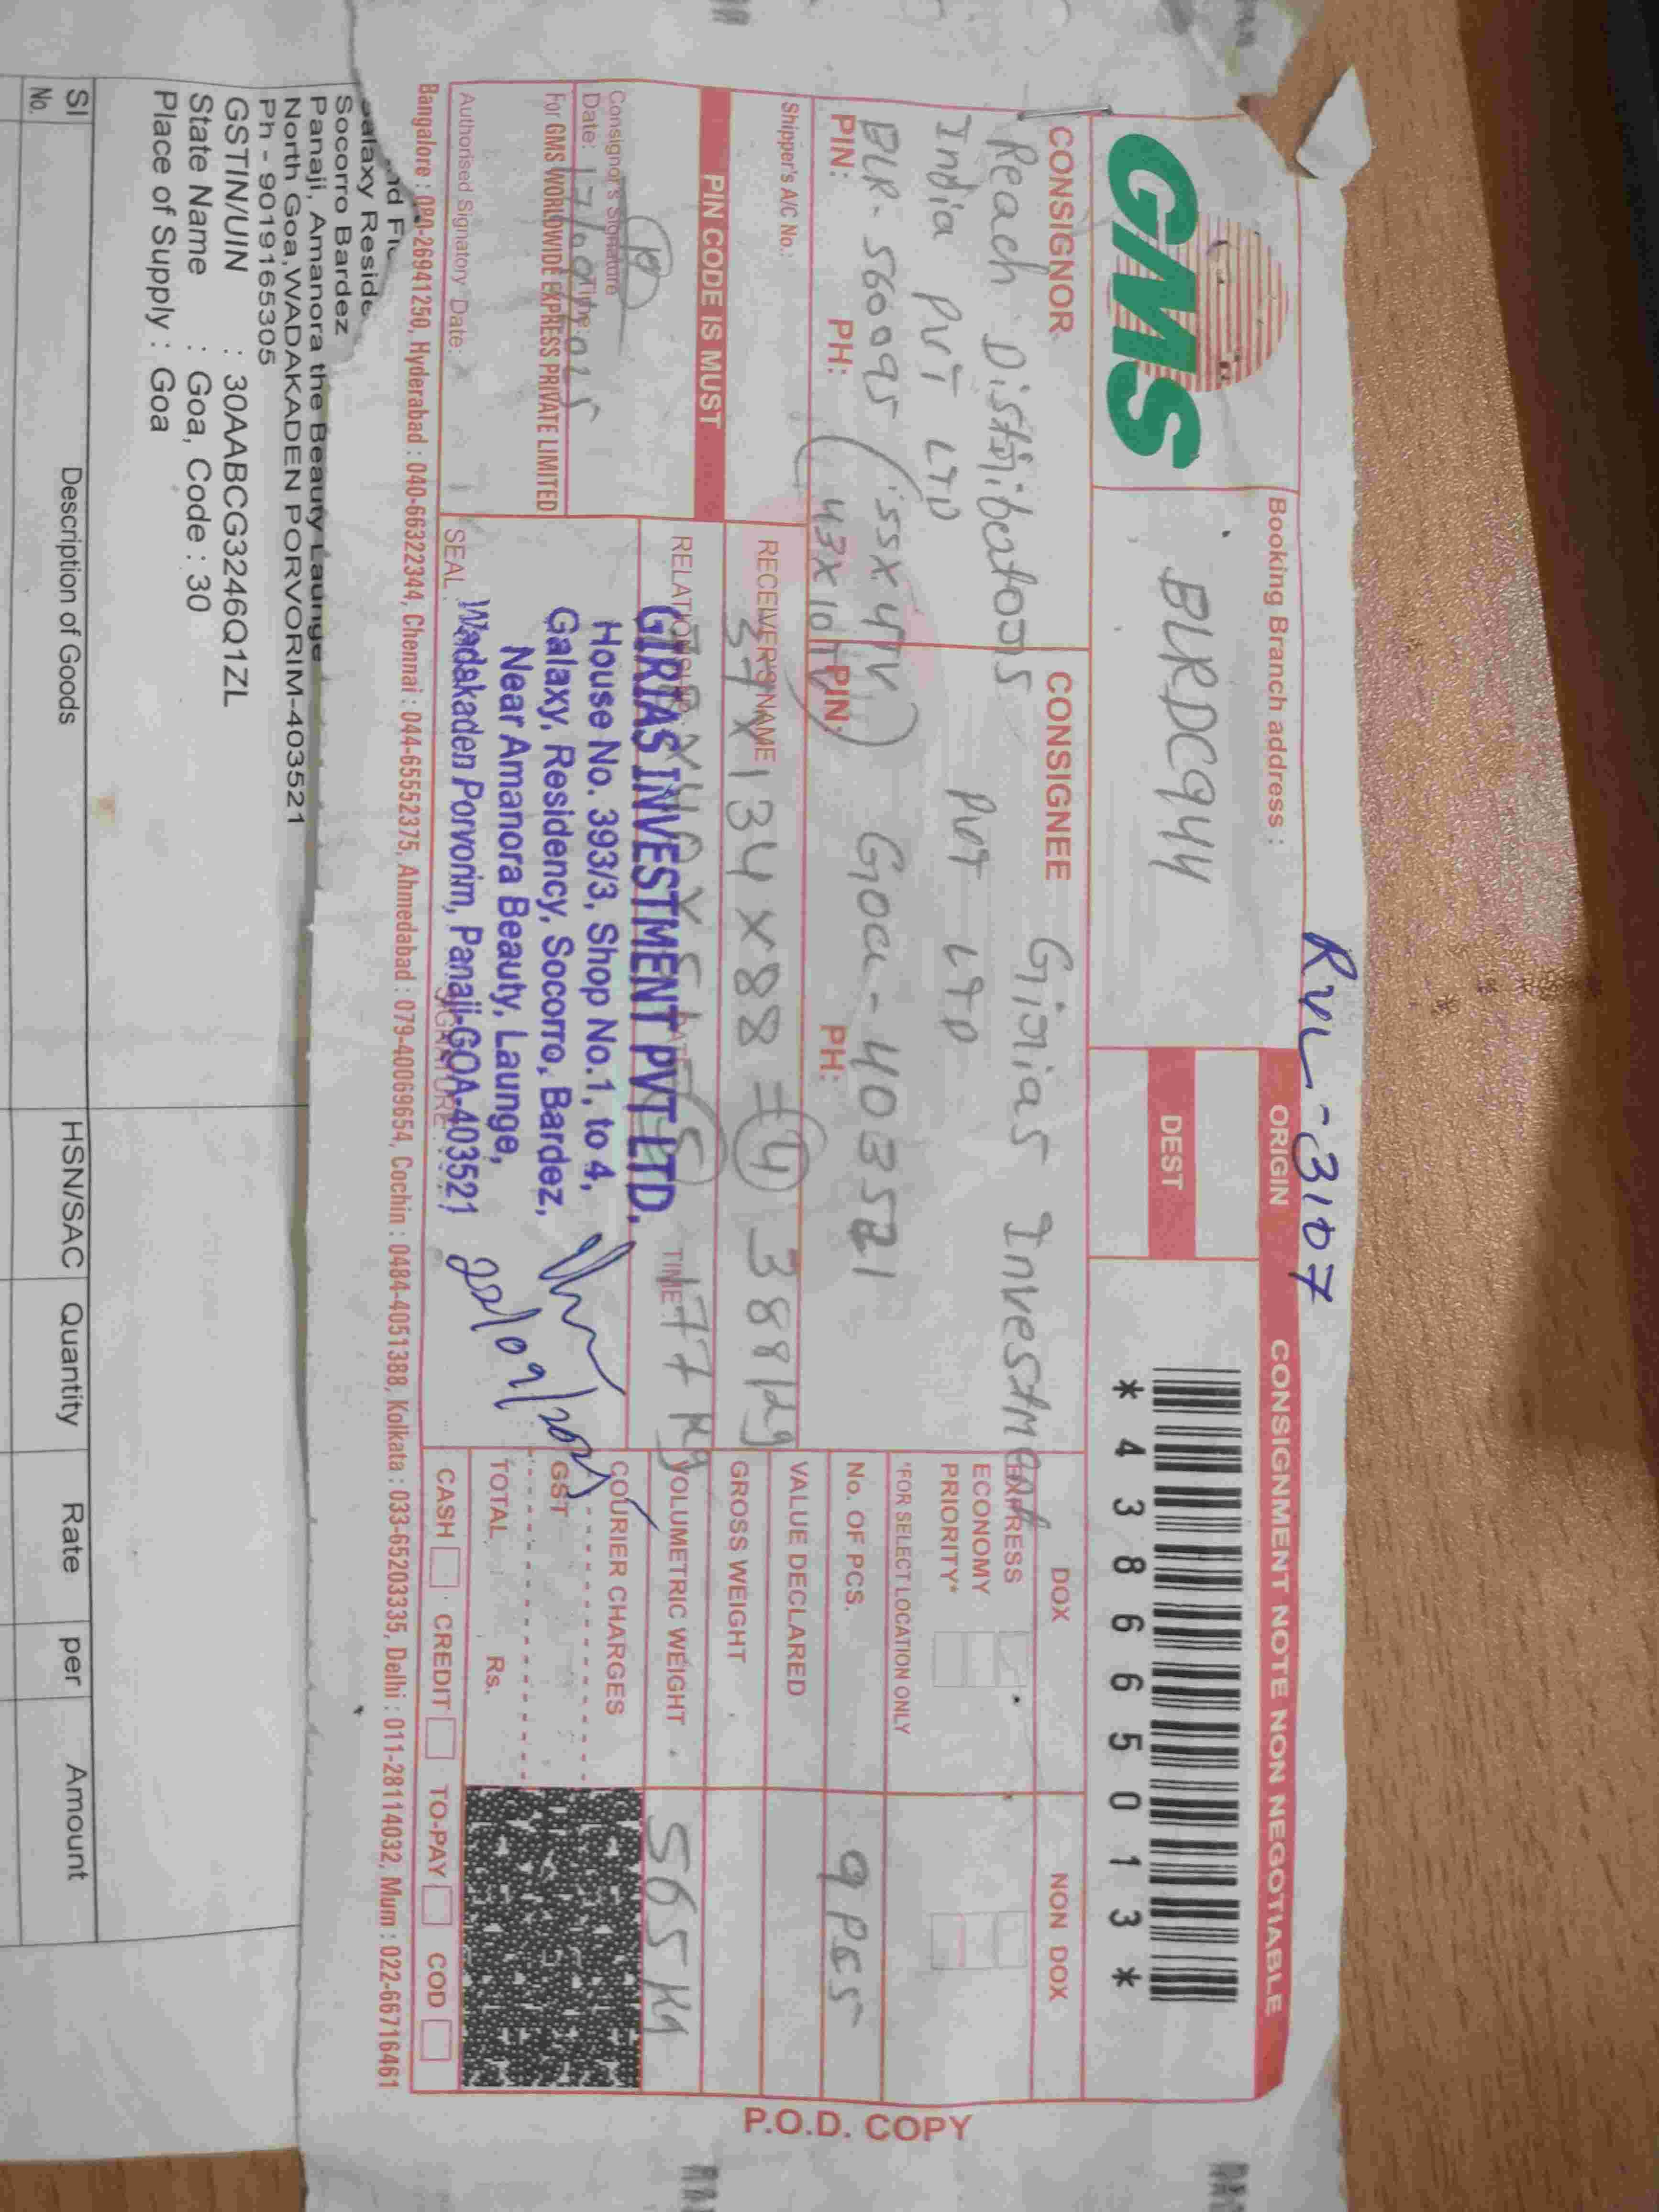 RVL-3107
GMS
Booking Branch address :
BLRDC944
ORIGIN
DEST
CONSIGNMENT NOTE NON NEGOTIABLE
* 4 3 8 6 6 5 0 1 3 *
CONSIGNOR
Reach Distributors
India PVT LTD
BLR- 560095
PIN:
PH:
(55x4TV)
(43x10TV)
Shipper's A/C No.:
PIN CODE IS MUST
Consignor's Signature
Date:
Time:
For GMS WORLDWIDE EXPRESS PRIVATE LIMITED
Authorised Signatory Date:
CONSIGNEE
Girias Investment
PVT LTD
Goa - 403521
PIN:
PH:
RECEIVER'S NAME
134 x 88 = 4 388kg
RELATIONSHIP
TIME
177 Kg
GIRIAS INVESTMENT PVT LTD.
House No. 393/3, Shop No.1, to 4,
Galaxy, Residency, Socorro, Bardez,
Near Amanora Beauty, Launge,
Wadakaden Porvorim, Panaji-GOA-403521
SEAL
SIGNATURE
DOX
NON DOX
EXPRESS
ECONOMY
PRIORITY*
*FOR SELECT LOCATION ONLY
No. OF PCS.
9 Pcs
VALUE DECLARED
GROSS WEIGHT
VOLUMETRIC WEIGHT
565 Kg
COURIER CHARGES
GST
TOTAL Rs.
CASH CREDIT TO-PAY COD
P.O.D. COPY
Bangalore : 080-26941250, Hyderabad : 040-66322344, Chennai : 044-65552375, Ahmedabad : 079-40069654, Cochin : 0484-4051388, Kolkata : 033-65203335, Delhi : 011-28114032, Mum : 022-66716461
Socorro Bardez
Panaji, Amanora the Beauty Launge
North Goa,WADAKADEN PORVORIM-403521
Ph - 9019165305
GSTIN/UIN : 30AABCG3246Q1ZL
State Name : Goa, Code : 30
Place of Supply : Goa
Sl No.
Description of Goods
HSN/SAC
Quantity
Rate
per
Amount